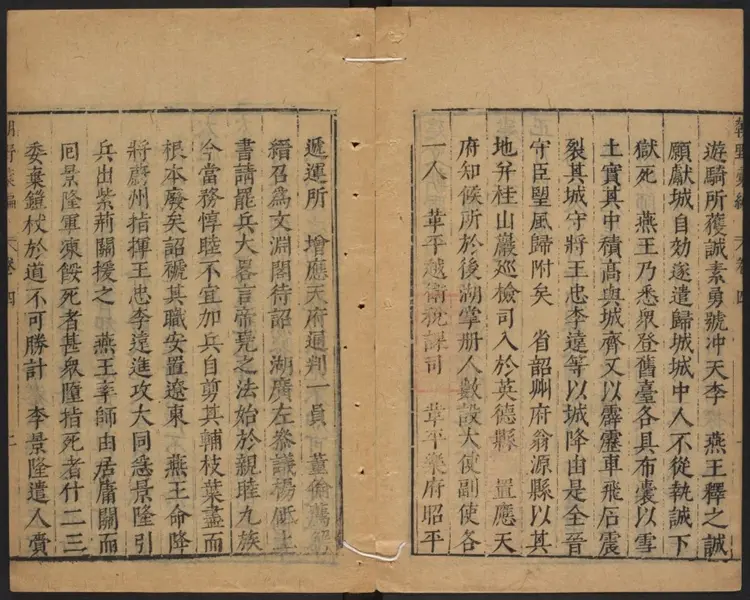 遊騎所獲誠素勇號冲天李 燕王釋之誠
願獻城自効遂遣歸城城中人不從執誠下
獄死 燕王乃悉衆登舊臺各具布囊以雪
土實其中積高與城齊又以霹靂車飛石震
裂其城守將王忠李遠等以城降由是全晉
守臣朢風歸附矣 省韶州府翁源縣以其
地弁桂山巖巡檢司入於英德縣 置應天
府知候所於後湖掌册人數設大使副使各
一人 革平越衛稅課司 革平樂府昭平
遞運所 增應天府通判一員 董倫薦解
縉召爲文淵閣待詔 湖廣左叅議楊砥上
書請罷兵大畧言帝堯之法始於親睦九族
今當務惇睦不宜加兵自剪其輔枝葉盡而
根本廢矣詔褫其職安置遼東 燕王命降
將蔚州指揮王忠李遠進攻大同急景隆引
兵出紫荆關援之 燕王率師由居庸關而
囘景隆軍凍餒死者甚衆墮指死者什二三
委棄鎧杖於道不可勝計 李景隆遣人賫
朝野彙編 卷四 二